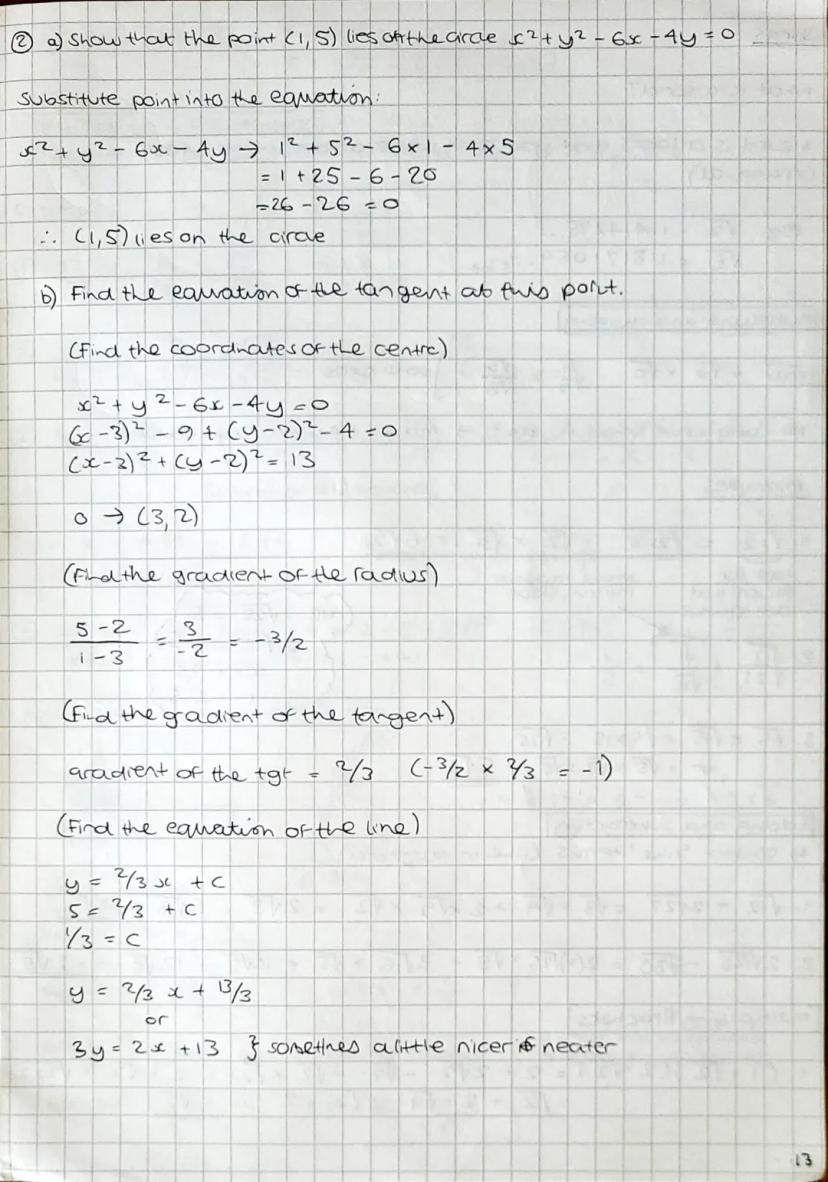 ② a) Show that the point (1,5) lies on the circle x² + y² - 6x - 4y = 0
Substitute point into the equation:
x² + y² - 6x - 4y → 1² + 5² - 6 × 1 - 4 × 5
= 1 + 25 - 6 - 20
= 26 - 26 = 0
∴ (1,5) lies on the circle
b) Find the equation of the tangent at this point.
(Find the coordinates of the centre)
x² + y² - 6x - 4y = 0
(x - 3)² - 9 + (y - 2)² - 4 = 0
(x - 3)² + (y - 2)² = 13
O → (3,2)
(Find the gradient of the radius)
5 - 2 / 1 - 3 = 3 / -2 = -3/2
(Find the gradient of the tangent)
gradient of the tgt = 2/3 (-3/2 × 2/3 = -1)
(Find the equation of the line)
y = 2/3 x + c
5 = 2/3 + c
1/3 = c
y = 2/3 x + 13/3
or
3y = 2x + 13 } sometimes a little nicer & neater
13